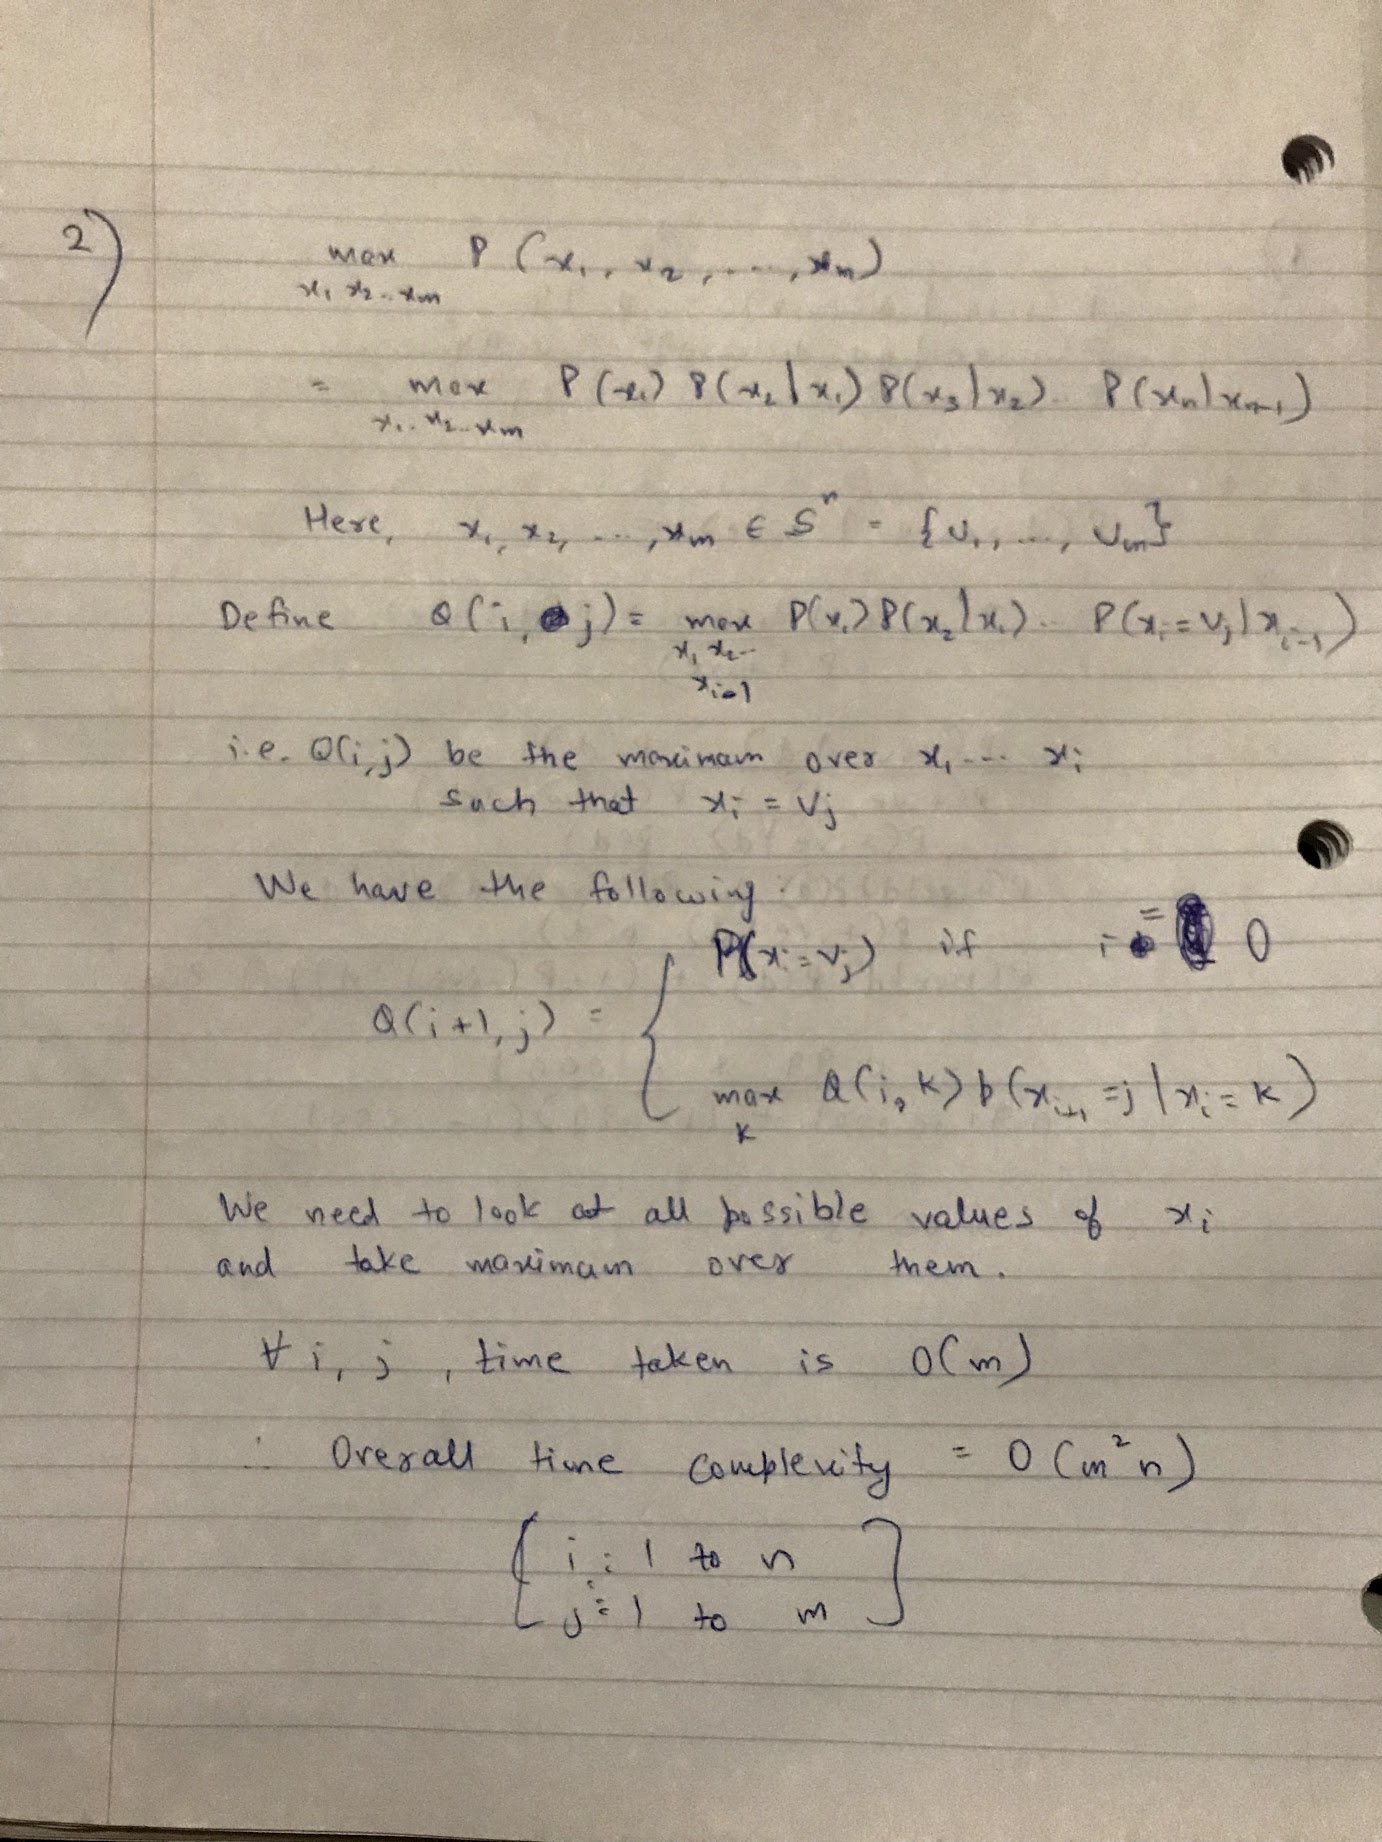 2)
max P (x1, x2, ..., xn)
x1 x2..xm
= max P(x1) P(x2|x1) P(x3|x2).. P(xn|xn-1)
x1.. x2..xm
Here, x1, x2, ..., xm ∈ S^n = {v1, ..., vm}
Define Q(i, j) = max P(x1) P(x2|x1).. P(xi = vj | xi-1)
x1 x2..
xi-1
i.e. Q(i,j) be the maximum over x1 ... xi
such that xi = vj
We have the following:
P(xi = vj) if i = 0
Q(i+1, j) =
max Q(i, k) p(xi+1 = j | xi = k)
k
We need to look at all possible values of xi
and take maximum over them.
∀ i, j , time taken is O(m)
∴ Overall time complexity = O(m²n)
[ i : 1 to n
j = 1 to m ]